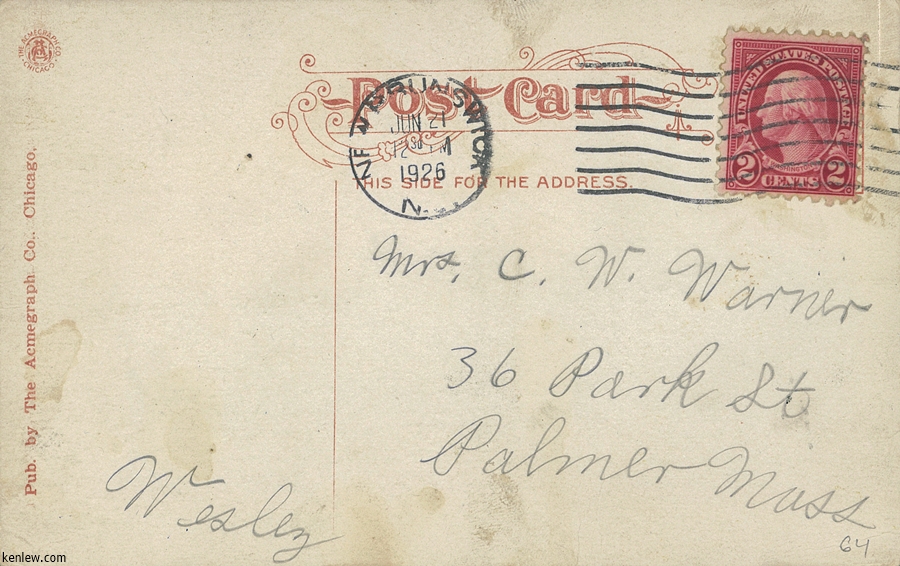 THE ACMEGRAPH CO. CHICAGO
Post Card
THIS SIDE FOR THE ADDRESS.
NEW BRUNSWICK
JUN 21
12 30 PM
1926
N.
UNITED STATES POSTAGE
WASHINGTON
2 CENTS 2
Pub. by The Acmegraph Co., Chicago.
Mrs. C. W. Warner
36 Park St
Palmer Mass
Wesley
64
kenlew.com